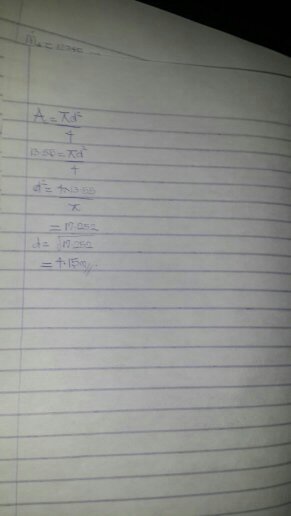 A = πd²/4
13.55 = πd²/4
d² = 4x13.55/π
= 17.252
d = √17.252
= 4.15m//.